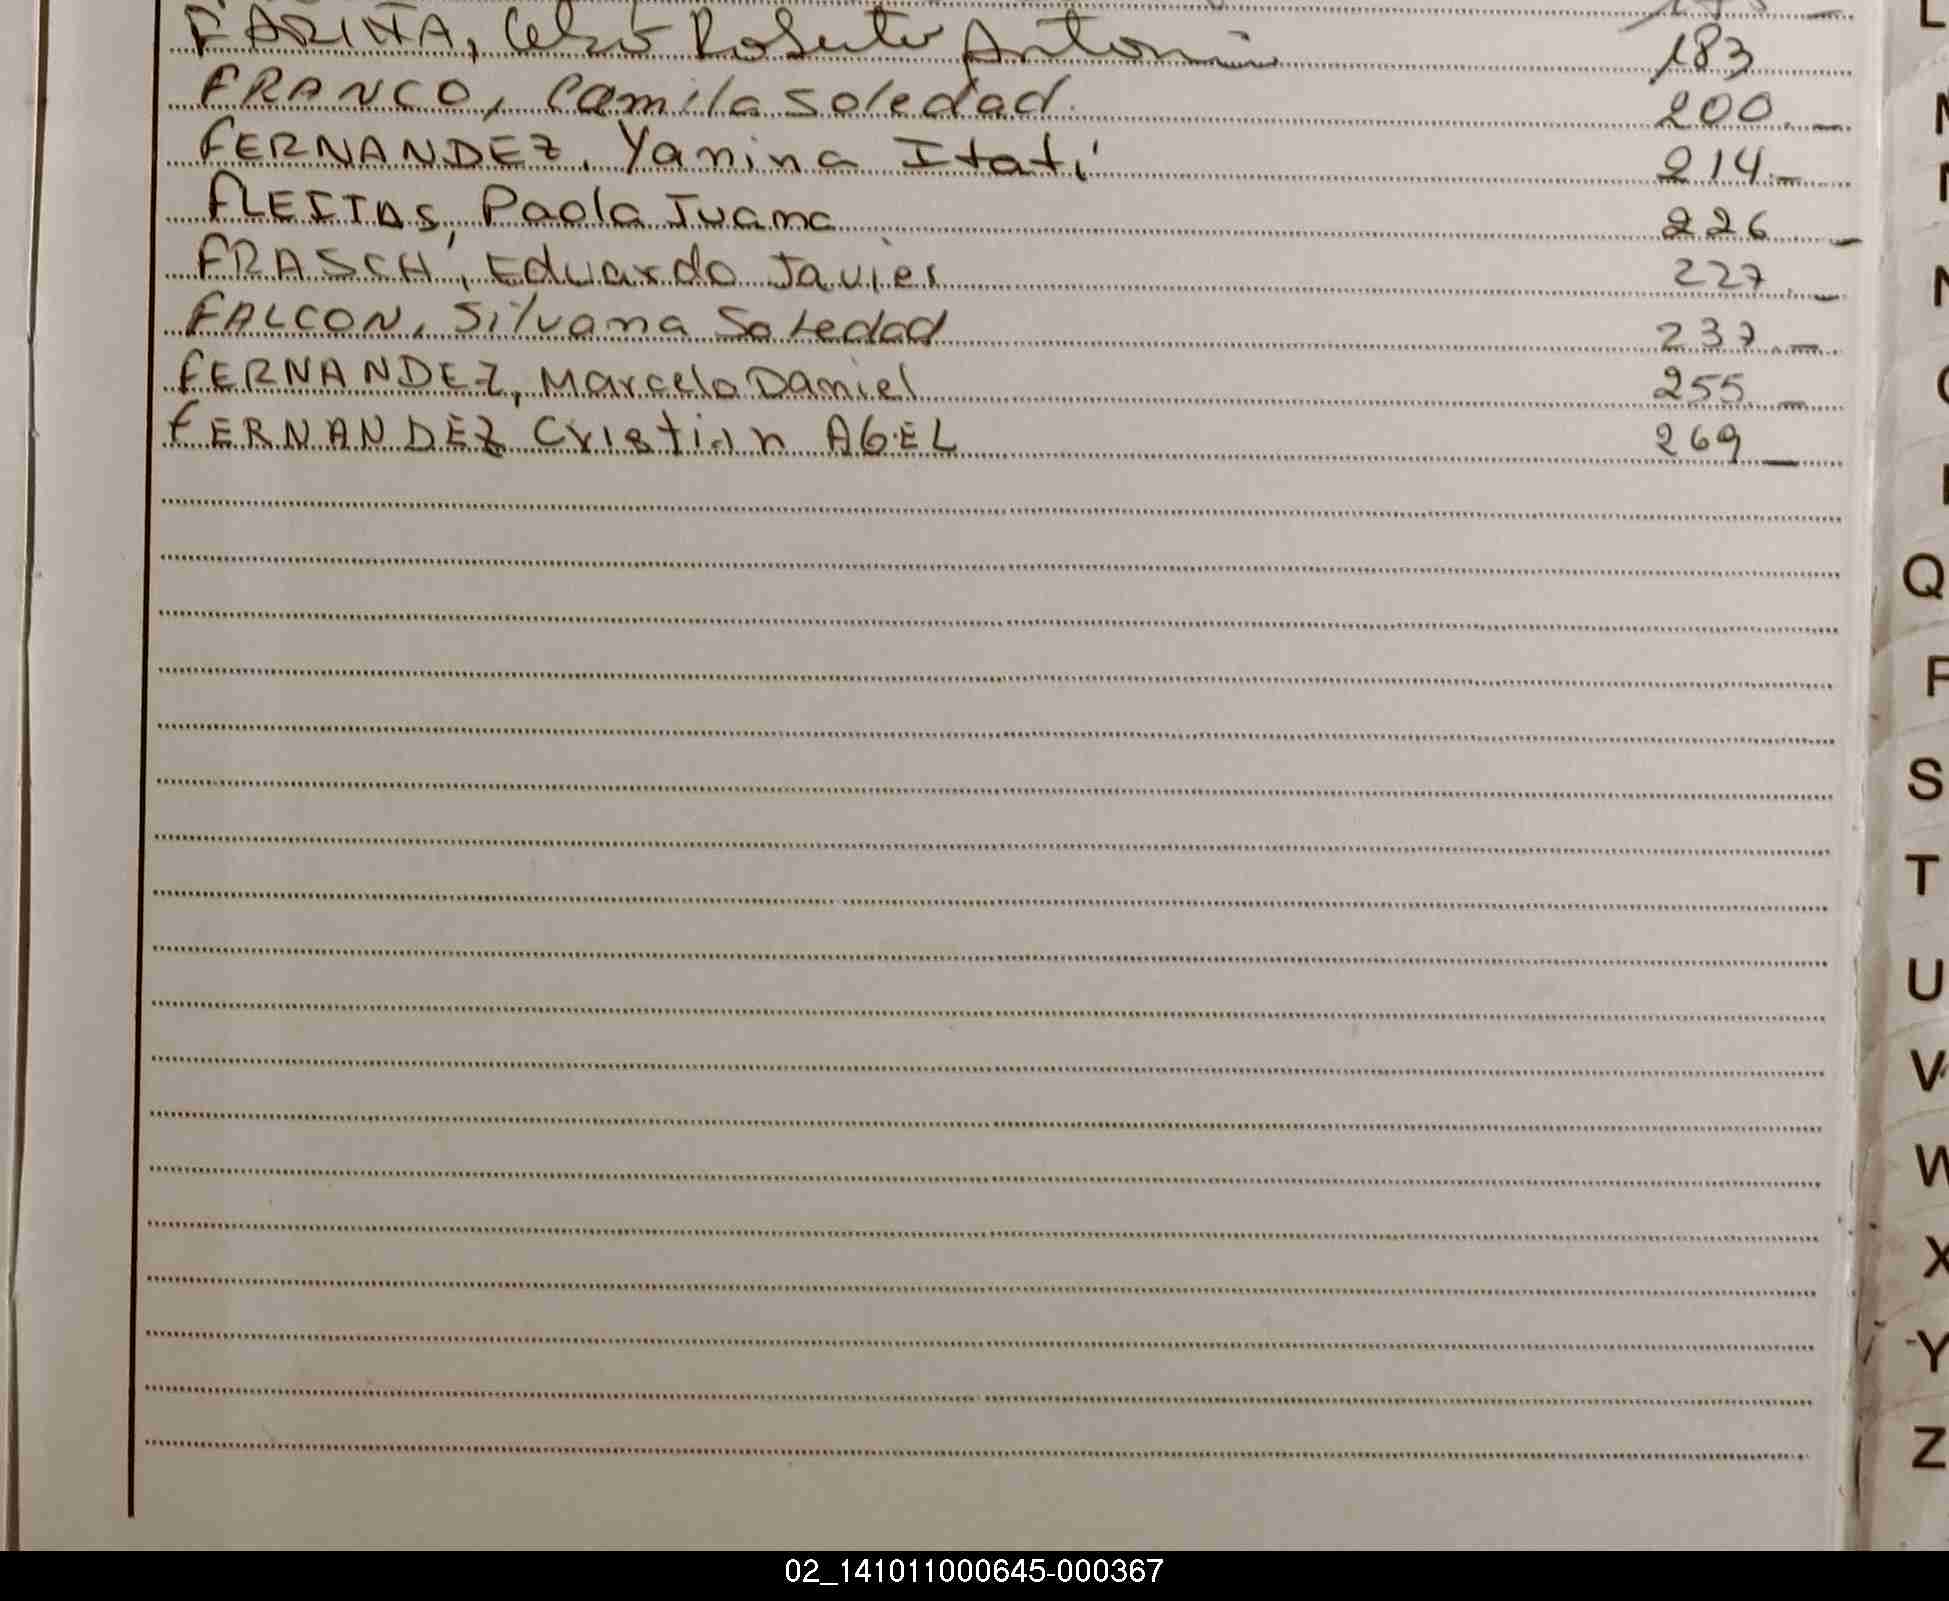 FARIÑA, Celso Roberto Antonio 183
FRANCO, Camila Soledad. 200.-
FERNANDEZ, Yanina Itatí 214.-
FLEITAS, Paola Juana 226 -
FRASCH, Eduardo Javier 227.-
FALCON, Silvana Soledad 237.-
FERNANDEZ, Marcelo Daniel 255 -
FERNANDEZ Cristian AGEL 269 -
L
M
N
Q
R
S
T
U
V
W
X
Y
Z
02_141011000645-000367